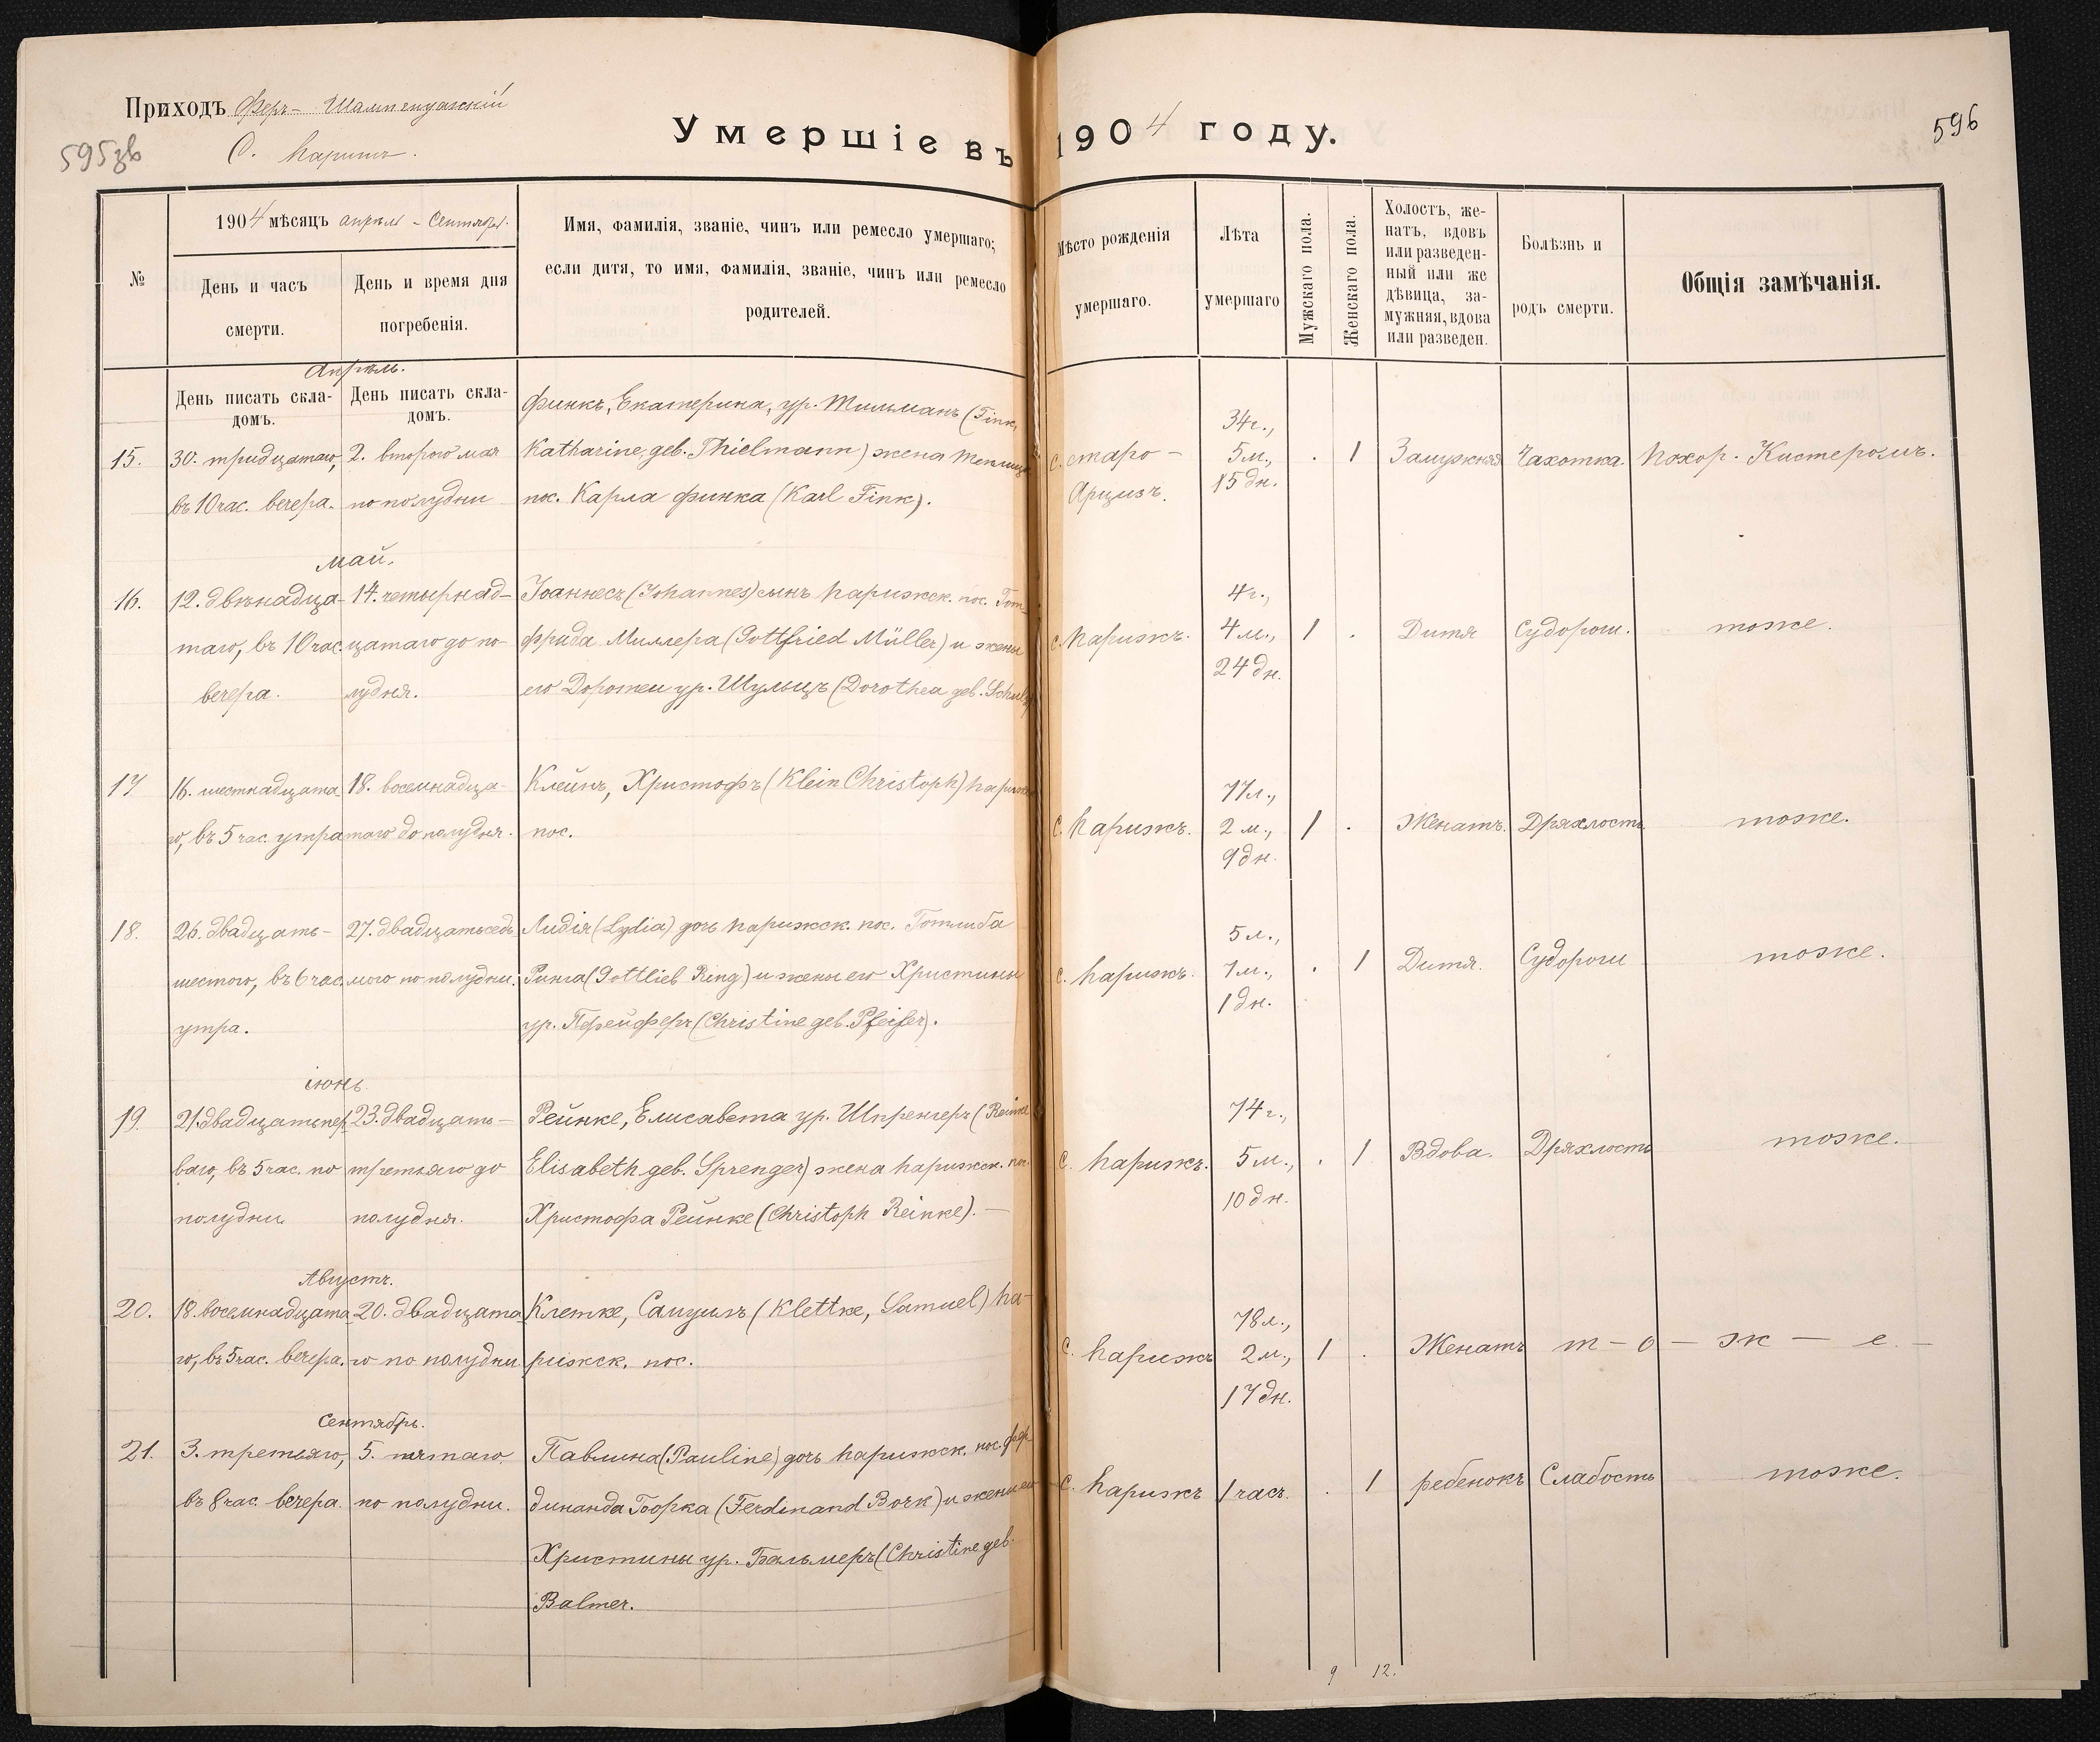 Приходъ Феръ-Шампенуазскій
595зв
С. Парижъ.
Умершіе въ 1904 году.
596
№
1904 мѣсяцъ апрѣль - Сентябрь.
День и часъ смерти.
День и время дня погребенія.
Имя, фамилія, званіе, чинъ или ремесло умершаго;
если дитя, то имя, фамилія, званіе, чинъ или ремесло
родителей.
Мѣсто рожденія
умершаго.
Лѣта
умершаго
Мужскаго пола.
Женскаго пола.
Холостъ, же-
натъ, вдовъ
или разведен-
ный или же
дѣвица, за-
мужняя, вдова
или разведен.
Болѣзнь и
родъ смерти.
Общія замѣчанія.
Апрѣль.
День писать скла-
домъ.
День писать скла-
домъ.
15.
30. тридцатаго,
въ 10 час. вечера.
2. второго мая
по полудни
Финкъ, Екатерина, ур. Тильманъ (Fink,
Katharine, geb. Thielmann) жена
пос. Карла Финка (Karl Fink).
с. Старо-
Арцизъ.
34 г.,
5 м.,
15 дн.
. 1
Замужняя
Чахотка.
Похор. Кистеромъ.
Май.
16.
12. двѣнадца-
таго, въ 10 час.
вечера.
14. четырнад-
цатаго до по-
лудня.
Іоаннесъ (Johannes) сынъ Парижск. пос. Гот-
фрида Миллера (Gottfried Müller) и жены
его Доротеи ур. Шульцъ (Dorothea geb. Schulz)
с. Парижъ.
4 г.,
4 м.,
24 дн.
1 .
Дитя
Судороги.
тоже.
17
16. шестнадцата
го, въ 5 час. утра
18. восемнадца-
таго до полудня.
Клейнъ, Христофъ (Klein Christoph) Парижск
пос.
с. Парижъ.
77 л.,
2 м.,
9 дн.
1 .
Женатъ.
Дряхлость
тоже.
18.
26. двадцать-
шестого, въ 6 час.
утра.
27. двадцатьседь
мого по полудни.
Лидія (Lydia) дочь Парижск. пос. Готлиба
Ринга (Gottlieb Ring) и жены его Христины
ур. Пфейферъ (Christine geb. Pfeifer).
с. Парижъ.
5 л.,
7 м.,
1 дн.
. 1
Дитя.
Судороги
тоже.
іюнь.
19.
21. двадцатьпер
ваго, въ 5 час. по
полудни.
23. двадцать-
третьяго до
полудня.
Рейнке, Елисавета ур. Шпренгеръ (Reinke
Elisabeth geb. Sprenger) жена Парижск. пос.
Христофа Рейнке (Christoph Reinke).
с. Парижъ.
74 г.,
5 м.,
10 дн.
. 1
Вдова.
Дряхлость
тоже.
Августъ.
20.
18. восемнадцата
го, въ 5 час. вечера.
20. двадцата
го по полудни
Клетке, Самуилъ (Klettke, Samuel) Па-
рижск. пос.
с. Парижъ
78 л.,
2 м.,
17 дн.
1 .
Женатъ
т - о - ж - е. -
Сентябрь.
21.
3. третьяго,
въ 8 час. вечера.
5. пятаго
по полудни.
Павлина (Pauline) дочь Парижск. пос. Фер-
динанда Боорка (Ferdinand Bork) и жены его
Христины ур. Бальмеръ (Christine geb.
Balmer.
с. Парижъ
1 часъ.
. 1
ребенокъ
Слабость
тоже.
9 12.